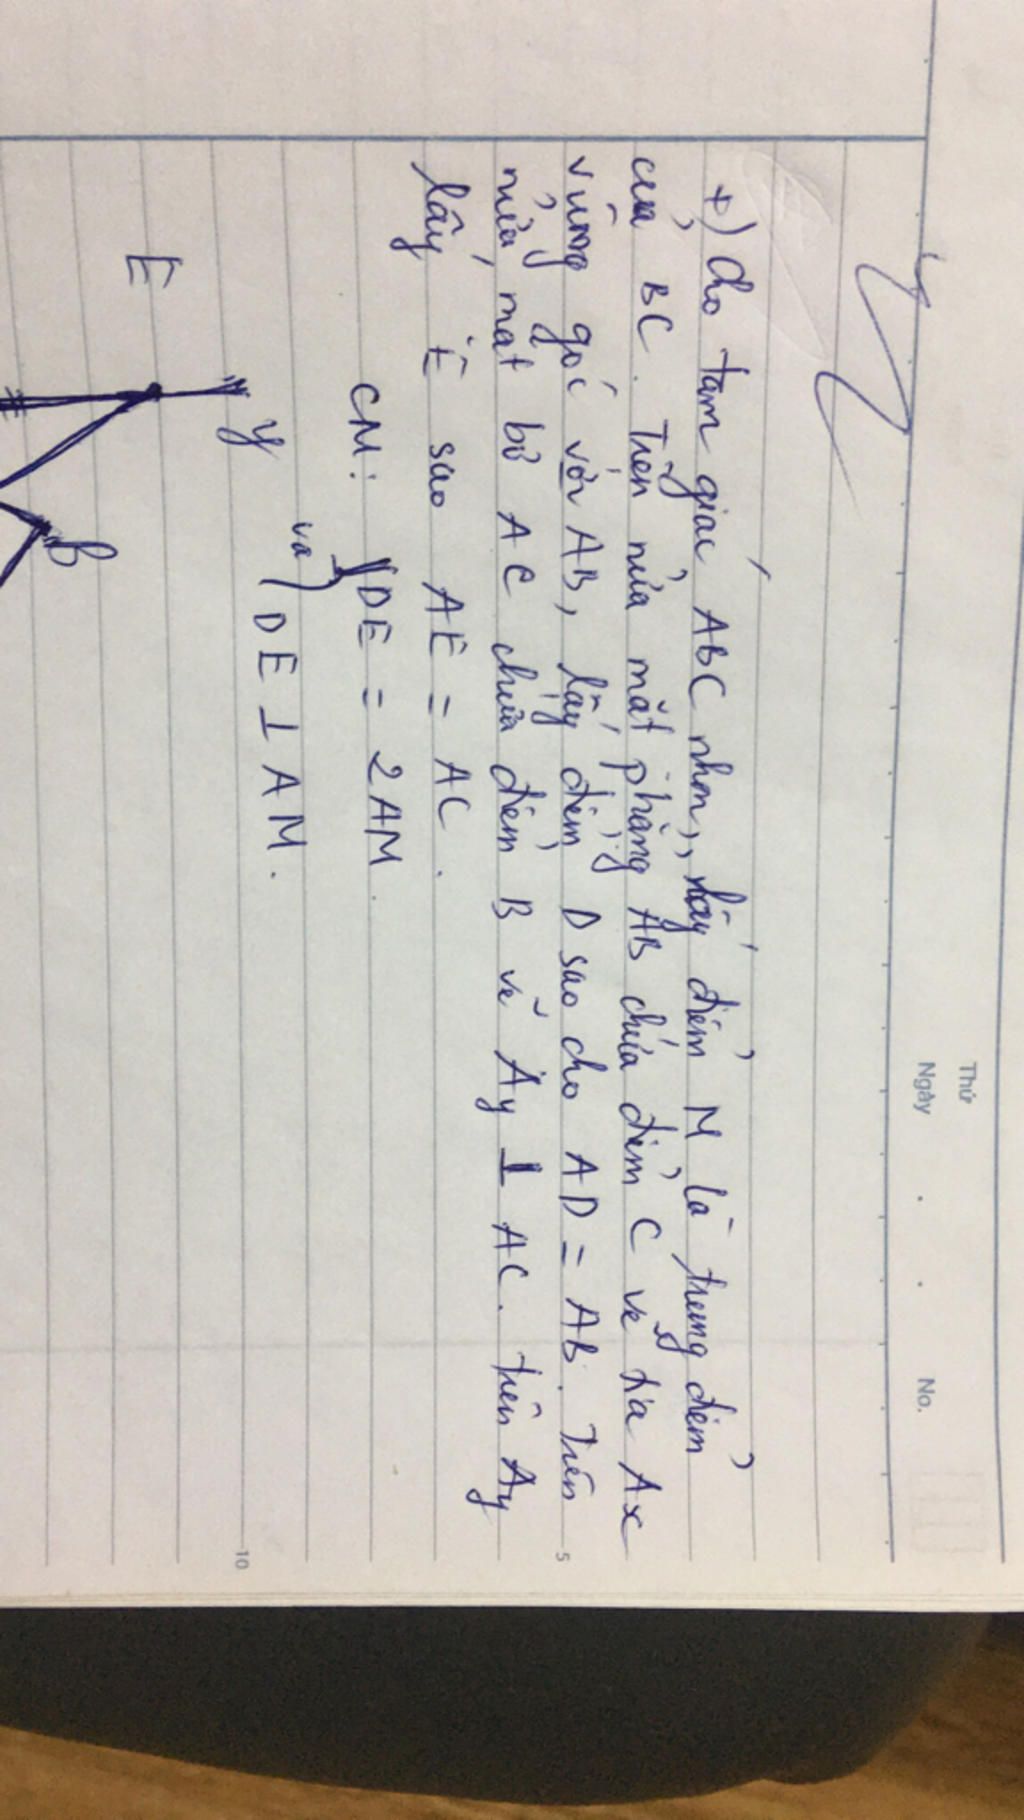 Thứ
Ngày . . No.
+) Cho tam giác ABC nhọn, lấy điểm M là trung điểm
của BC. Trên nửa mặt phẳng AB chứa điểm C vẽ tia Ax
vuông góc với AB, lấy điểm D sao cho AD = AB. Trên
nửa mặt bờ AC chứa điểm B vẽ Ay ⊥ AC. Trên Ay
lấy E sao AE = AC.
CM: DE = 2AM.
và) DE ⊥ AM.
5
10
y
E
B